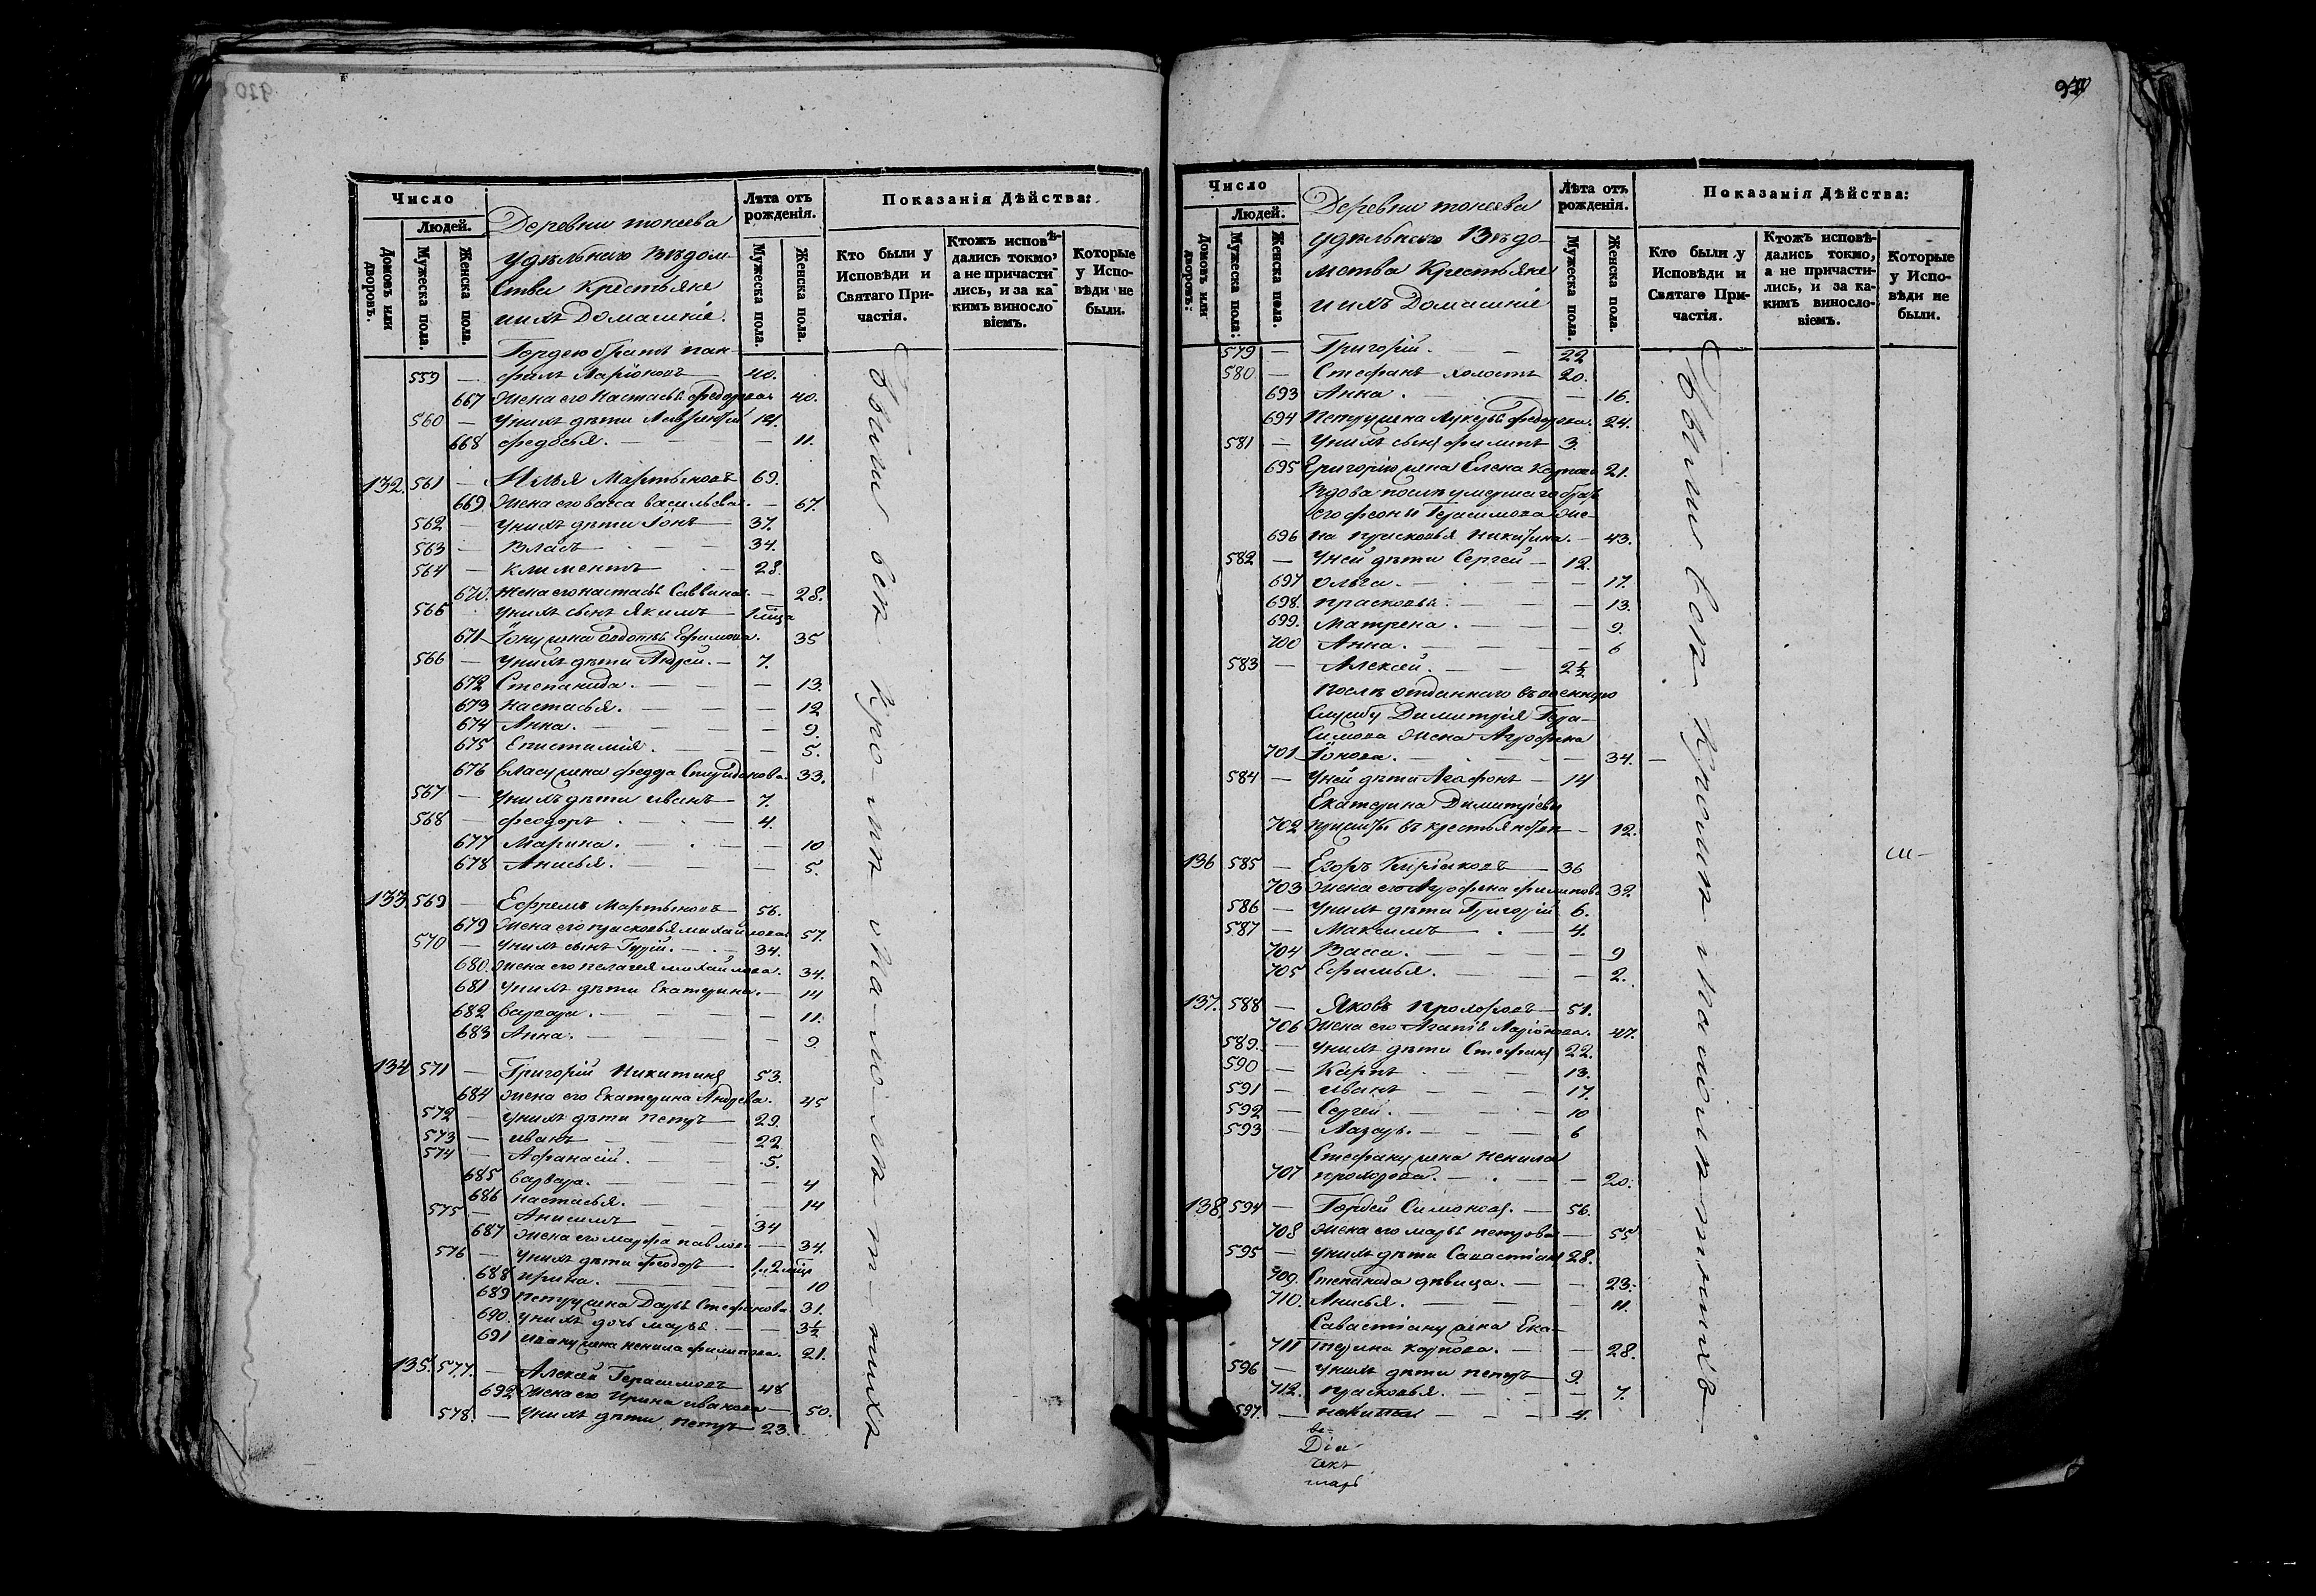 920
Число
Людей.
Домовъ или дворовъ.
Мужеска пола.
Женска пола.
Деревни токеева
удѣльнаго Вѣдом-
Ства Крестьяне
и ихъ Домашніе.
Лѣта отъ рожденія.
Мужеска пола.
Женска пола.
Показанія Дѣйства:
Кто были у Исповѣди и Святаго При-частія.
Ктожъ исповѣ-дались токмо, а не причасти-лись, и за ка-кимъ винослo-віемъ.
Которые у Испо-вѣди не были.
Гордею братъ пан-
559 — филъ Ларіоновъ — 40.
667 Жена его Настасья Федорова 40.
560 — У нихъ дѣти 14.
668 Федосья. — — — 11.
132. 561 — Илья Мартыновъ 69.
669 Жена его васса васильева. — 67.
562 — У нихъ дѣти Іонъ — 37.
563 — Власъ — — 34.
564 — Климентъ — 28.
670. Жена его настасья Саввина. — 28.
565 У нихъ сынъ Якимъ — 1 мѣца
671 Іону жена овдотья Ефимова. 35
566 — У нихъ дѣти Андрей. — 7.
672 Степанида. — — — 13.
673 Настасья. — — — 12
674 Анна. — — — 9.
675 Епистимія. — — 5.
676 Власу жена федора Спиридонова. 33.
567 — У нихъ дѣти иванъ — 7.
568 — феодоръ — 4.
677 Марина. — — — 10
678 Анисья. — — — 5.
133. 569 — Ефремъ Мартыновъ — 56.
679 Жена его прасковья михайлова 57.
570 — У нихъ сынъ Гурій. — 34.
680. Жена его пелагея михайлова. 34.
681 У нихъ дѣти Екатерина. — 14
682 варвара. — — — 11.
683 Анна. — — — 9
134 571 — Григорій Никитинъ 53.
684 Жена его Екатерина Андрева. 45
572 — У нихъ дѣти петръ — 29.
573 — иванъ — 22
574 — Афанасій. — — 5.
685 варвара. — — — 4
686 настасья. — — — 14
575 — Анисимъ — 34
687 Жена его марфа павлова — 34.
576 — У нихъ дѣти Феодоръ — 1. 2 мѣца
688 ирина. — — 10
689 петру жена Дарья Стефанова. 31.
690. У нихъ дочь марья. — — 3½
691 ивану жена ненила филипова. 21.
135. 577. — Алексей Герасимовъ 48
692 Жена его Ирина иванова — 50.
578 — У нихъ дѣти петръ — 23.
Число
Людей.
Домовъ или дворовъ.
Мужеска пола.
Женска пола.
Деревни токеева
удѣльнаго Вѣдо-
мства Крестьяне
и ихъ Домашніе
Лѣта отъ рожденія.
Мужеска пола.
Женска пола.
Показанія Дѣйства:
Кто были у Исповѣди и Святаго При-частія.
Ктожъ исповѣ-дались токмо, а не причасти-лись, и за ка-кимъ винослo-віемъ.
Которые у Испо-вѣди не были.
579 — Григорій. — — 22
580 — Стефанъ холостъ 20.
693 Анна. — — 16.
694 Петру жена Лукерья федорова. 24.
581 — У нихъ сынъ филипъ 3.
695 Григорію жена Елена Карпова 21.
Вдова послѣ умершаго брата
его феоны Герасимова же-
696 на прасковья Никитина. — 43.
582 — У ней дѣти Сергей — 12.
697 ольга. — — — 17.
698. прасковья. — — — 13.
699. Матрена. — — — 9.
700 Анна. — — — 6
583 — Алексей. — — 2½
Послѣ отданнаго въ военную
Службу Димитрія Гера-
Симова Жена Агрофена
701 Іонова. — — — 34. —
584 — У ней дѣти Агафонъ — 14
Екатерина Димитріева
702 — 12.
136 585 — Егоръ Киріяковъ — 36
703 Жена его Агрофена филипова 32.
586 — У нихъ дѣти Григорій 6.
587 — Максимъ — 4.
704 Васса. — — — 9
705 Ефимья. — — — 2.
137. 588 — Яковъ Прохоровъ — 51.
706 Жена его Агапія Ларіонова. 47.
589. — У нихъ дѣти Стефанъ 22.
590 — Карпъ — 13.
591 — иванъ — — 17.
592 — Сергей. — — 10
593 — Лазарь. — — 6
Стефану жена Ненила
707 прохорова. — — 20.
138. 594 — Гордей Симоновъ. — 56.
708 Жена его марья петрова — 55
595 — У нихъ дѣти Савастіянъ 28.
709. Степанида дѣвица. — — 23.
710. Анисья. — — — 11.
Савастіяну жена Ека-
711 терина карпова. — — 28.
596 — У нихъ дѣти петръ — 9.
712. прасковья. — — — 7.
597. — никита — — 4.